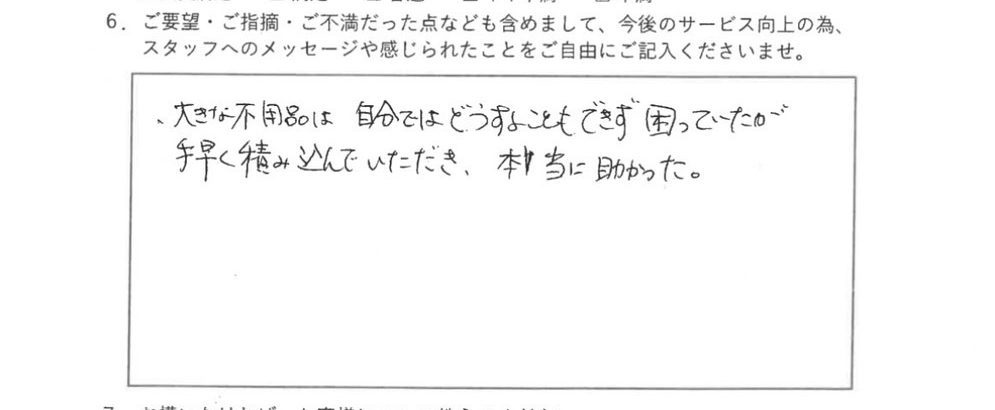 6. ご要望・ご指摘・ご不満だった点なども含めまして、今後のサービス向上の為、
スタッフへのメッセージや感じられたことをご自由にご記入くださいませ。
、大きな不用品は 自分ではどうすることもできず 困っていたが
手早く積み込んでいただき、本当に助かった。